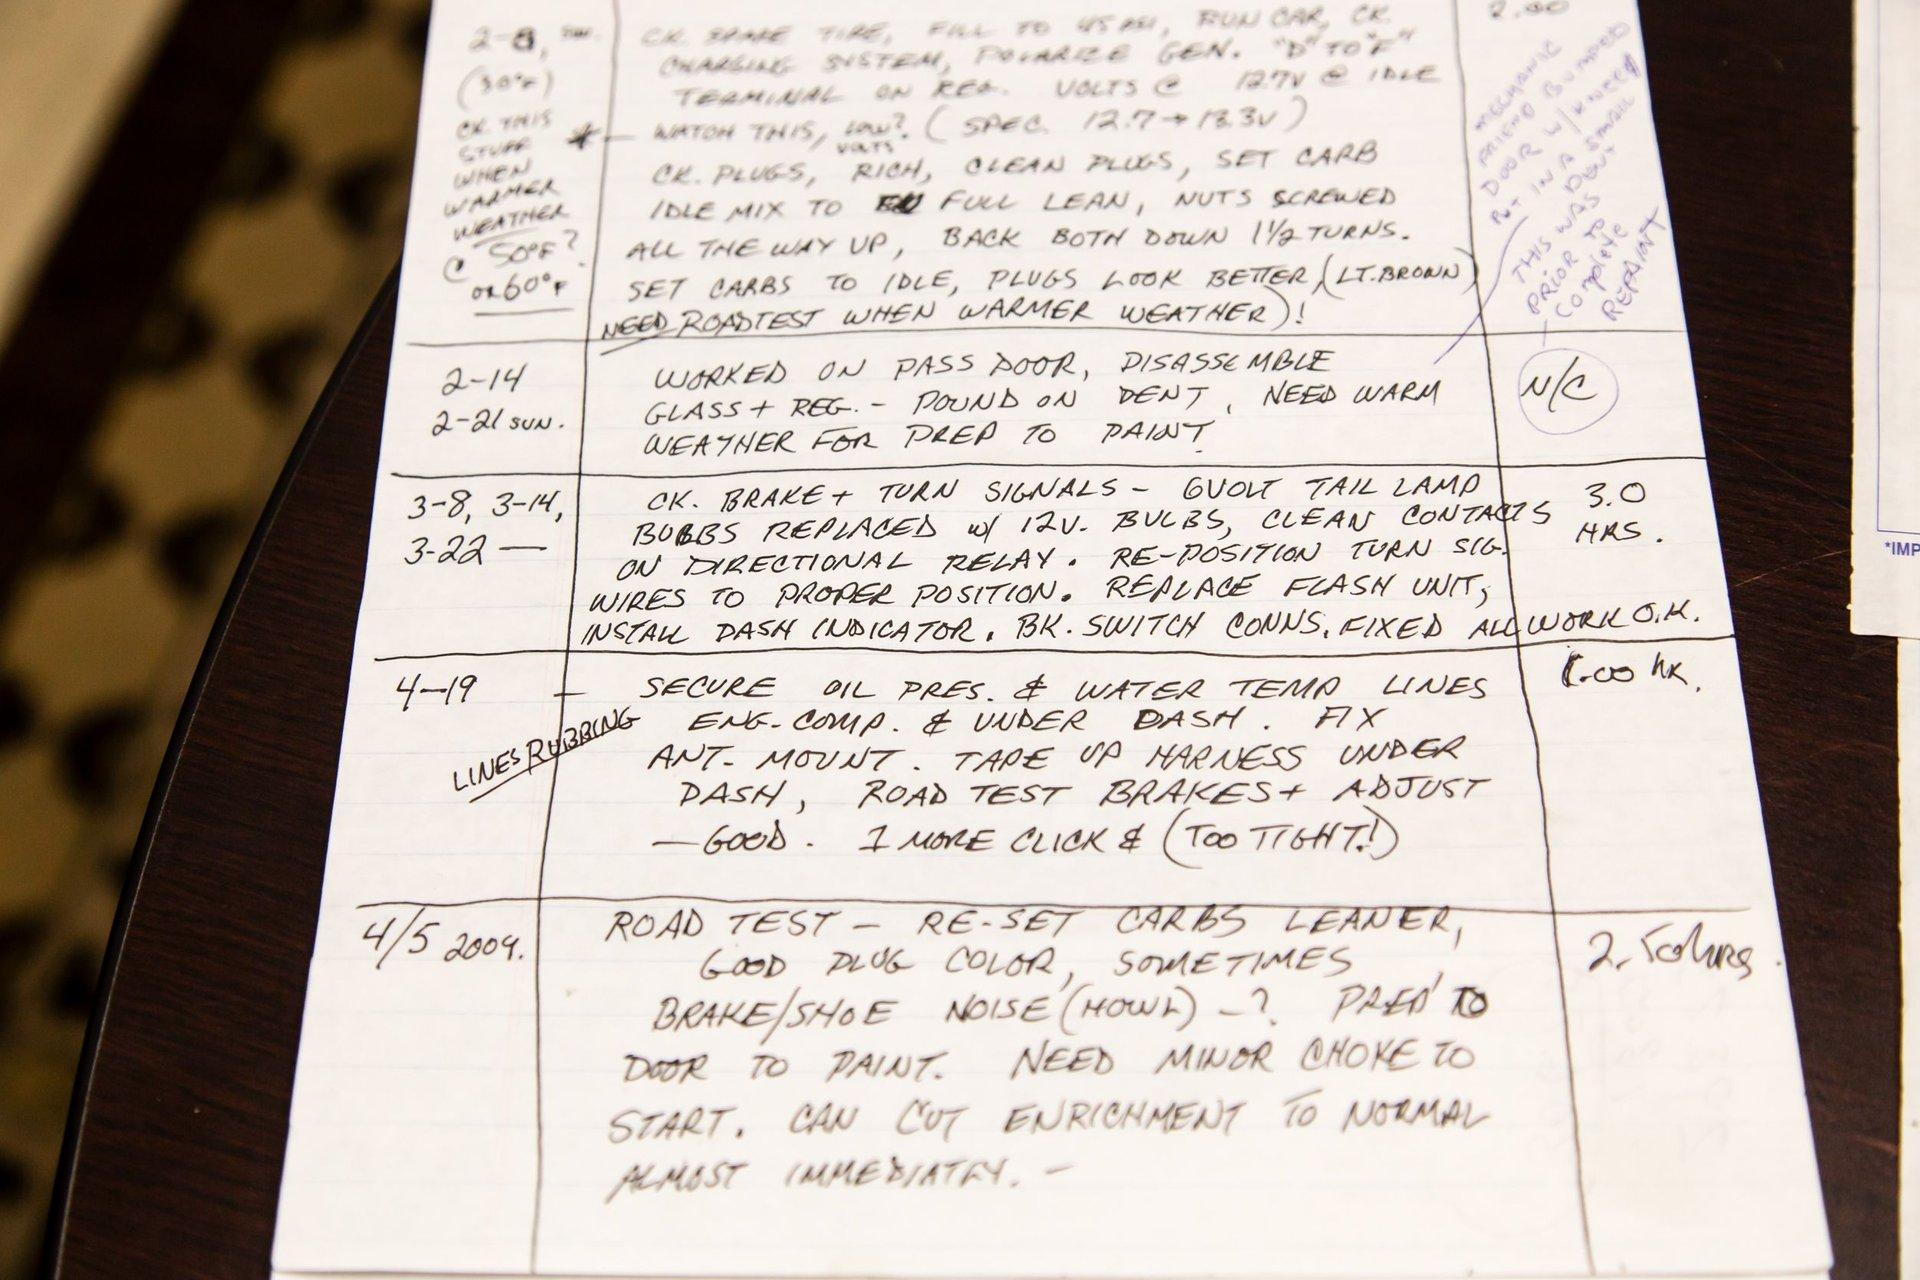 2-8, SUN.
(30°F)
CK. THIS
STUFF
WHEN
WARMER
WEATHER
@ 50°F?
OR 60°F
CK. SPARE TIRE, FILL TO 45 PSI, RUN CAR, CK.
CHARGING SYSTEM, POLARIZE GEN. "D" TO "F"
TERMINAL ON REG. VOLTS @ 12.7V @ IDLE
* — WATCH THIS, LOW? (SPEC. 12.7 → 13.3V)
VOLTS
CK. PLUGS, RICH, CLEAN PLUGS, SET CARB
IDLE MIX TO FULL LEAN, NUTS SCREWED
ALL THE WAY UP, BACK BOTH DOWN 1½ TURNS.
SET CARBS TO IDLE, PLUGS LOOK BETTER, (LT. BROWN)
NEED ROADTEST WHEN WARMER WEATHER)!
2.00
MECHANIC
FRIEND BUMPED
DOOR W/KNEE &
PUT IN A SMALL
DENT
THIS WAS
PRIOR TO
COMPLETE
REPAINT
2-14
2-21 SUN.
WORKED ON PASS DOOR, DISASSEMBLE
GLASS + REG. - POUND ON DENT, NEED WARM
WEATHER FOR PREP TO PAINT.
N/C
3-8, 3-14,
3-22 —
CK. BRAKE + TURN SIGNALS - 6VOLT TAIL LAMP
BULBS REPLACED W/ 12V. BULBS, CLEAN CONTACTS
ON DIRECTIONAL RELAY. RE-POSITION TURN SIG.
WIRES TO PROPER POSITION. REPLACE FLASH UNIT,
INSTALL DASH INDICATOR. BK. SWITCH CONNS. FIXED ALL WORK O.K.
3.0
HRS.
4-19
LINES RUBBING
— SECURE OIL PRES. & WATER TEMP LINES
ENG. COMP. & UNDER DASH. FIX
ANT. MOUNT. TAPE UP HARNESS UNDER
DASH, ROAD TEST BRAKES + ADJUST
— GOOD. 1 MORE CLICK & (TOO TIGHT!)
1.00 hr.
4/5 2009.
ROAD TEST — RE-SET CARBS LEANER,
GOOD PLUG COLOR, SOMETIMES
BRAKE/SHOE NOISE (HOWL) —? PREP TO
DOOR TO PAINT. NEED MINOR CHOKE TO
START. CAN CUT ENRICHMENT TO NORMAL
ALMOST IMMEDIATLY. —
2.50 hrs.
*IMP